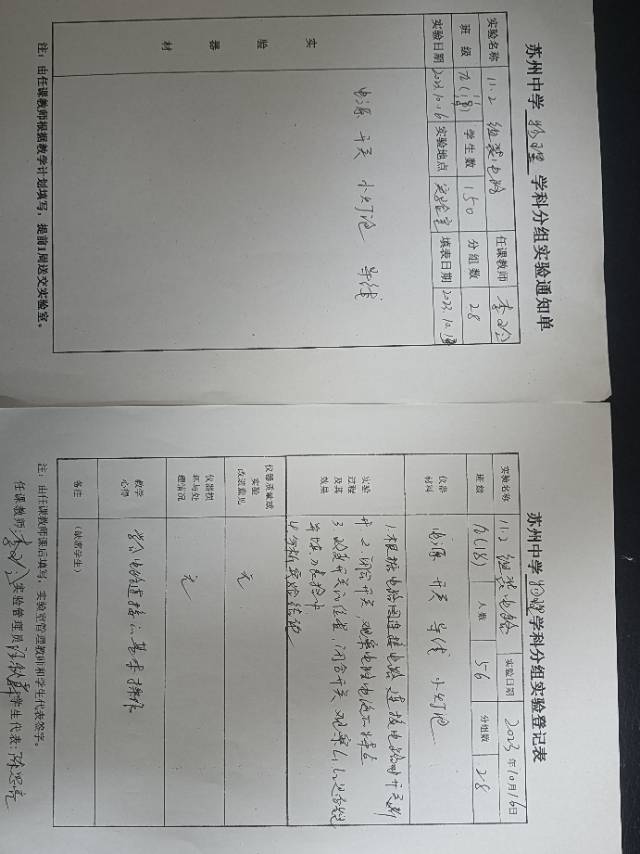 苏州中学 物理 学科分组实验通知单
实验名称 11.2 组装电路 任课教师
班级 九( 学生数 150 分组数 28
实验日期 2023.10.16 实验地点 实验室 填表日期 2023.10.
实验器材
电源 开关 小灯泡 导线
注：由任课教师根据教学计划填写，提前1周送交实验室。
苏州中学 物理 学科分组实验登记表
实验名称 11.2 组装电路 实验日期 2023 年 10 月 16 日
班级 九(18) 人数 56 分组数 28
仪器材料 电源 开关 导线 小灯泡
实验过程及其效果
1.根据电路图连接电路 连接电路时开关断
开 2.闭合开关，观察电路电流
3.改变开关的位置，闭合开关，观察L₁ L₂是否
并填入表格中
4.分析实验结论
仪器质量或实验改进意见 无
仪器损坏与处理情况 无
教学心得 学会电路连接的基本操作
备注 (缺席学生)
注：由任课教师课后填写，实验室管理教师和学生代表签字。
任课教师: 实验管理员: 学生代表: